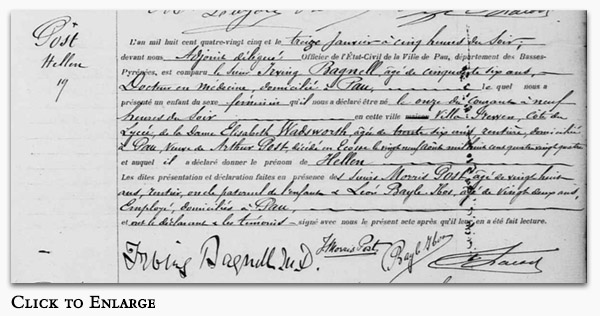 Post
Hellen
17
L'an mil huit cent quatre-vingt cinq et le treize Janvier à cinq heures du Soir,
devant nous Adjoint délégué Officier de l'État-Civil de la Ville de Pau, département des Basses-
Pyrénées, est comparu le Sieur Irving Bagnell, âgé de cinquante six ans,
Docteur en Médecine, domicilié à Pau, lequel nous a
présenté un enfant du sexe féminin qu'il nous a déclaré être né le onze du Courant à neuf
heures du Soir en cette ville Villa Côte du
Lycée, de la Dame Elisabeth Wadsworth, âgée de trente six ans, rentière, domiciliée
à Pau, Veuve de Arthur Post, décédé en Ecosse le vingt neuf Août mil huit cent quatre vingt quatre
et auquel il a déclaré donner le prénom de Hellen
Les dites présentation et déclaration faites en présence des Sieurs Morris Post, âgé de vingt huit
ans, rentier, oncle paternel de l'enfant & Léon Bayle Ibos, âgé de vingt deux ans,
Employé, domiciliés à Pau.
et ont le déclarant & les témoins signé avec nous le présent acte après qu'il leur en a été fait lecture.
Irving Bagnell M.D. J. Morris Post, Bayle Ibos
Click to Enlarge